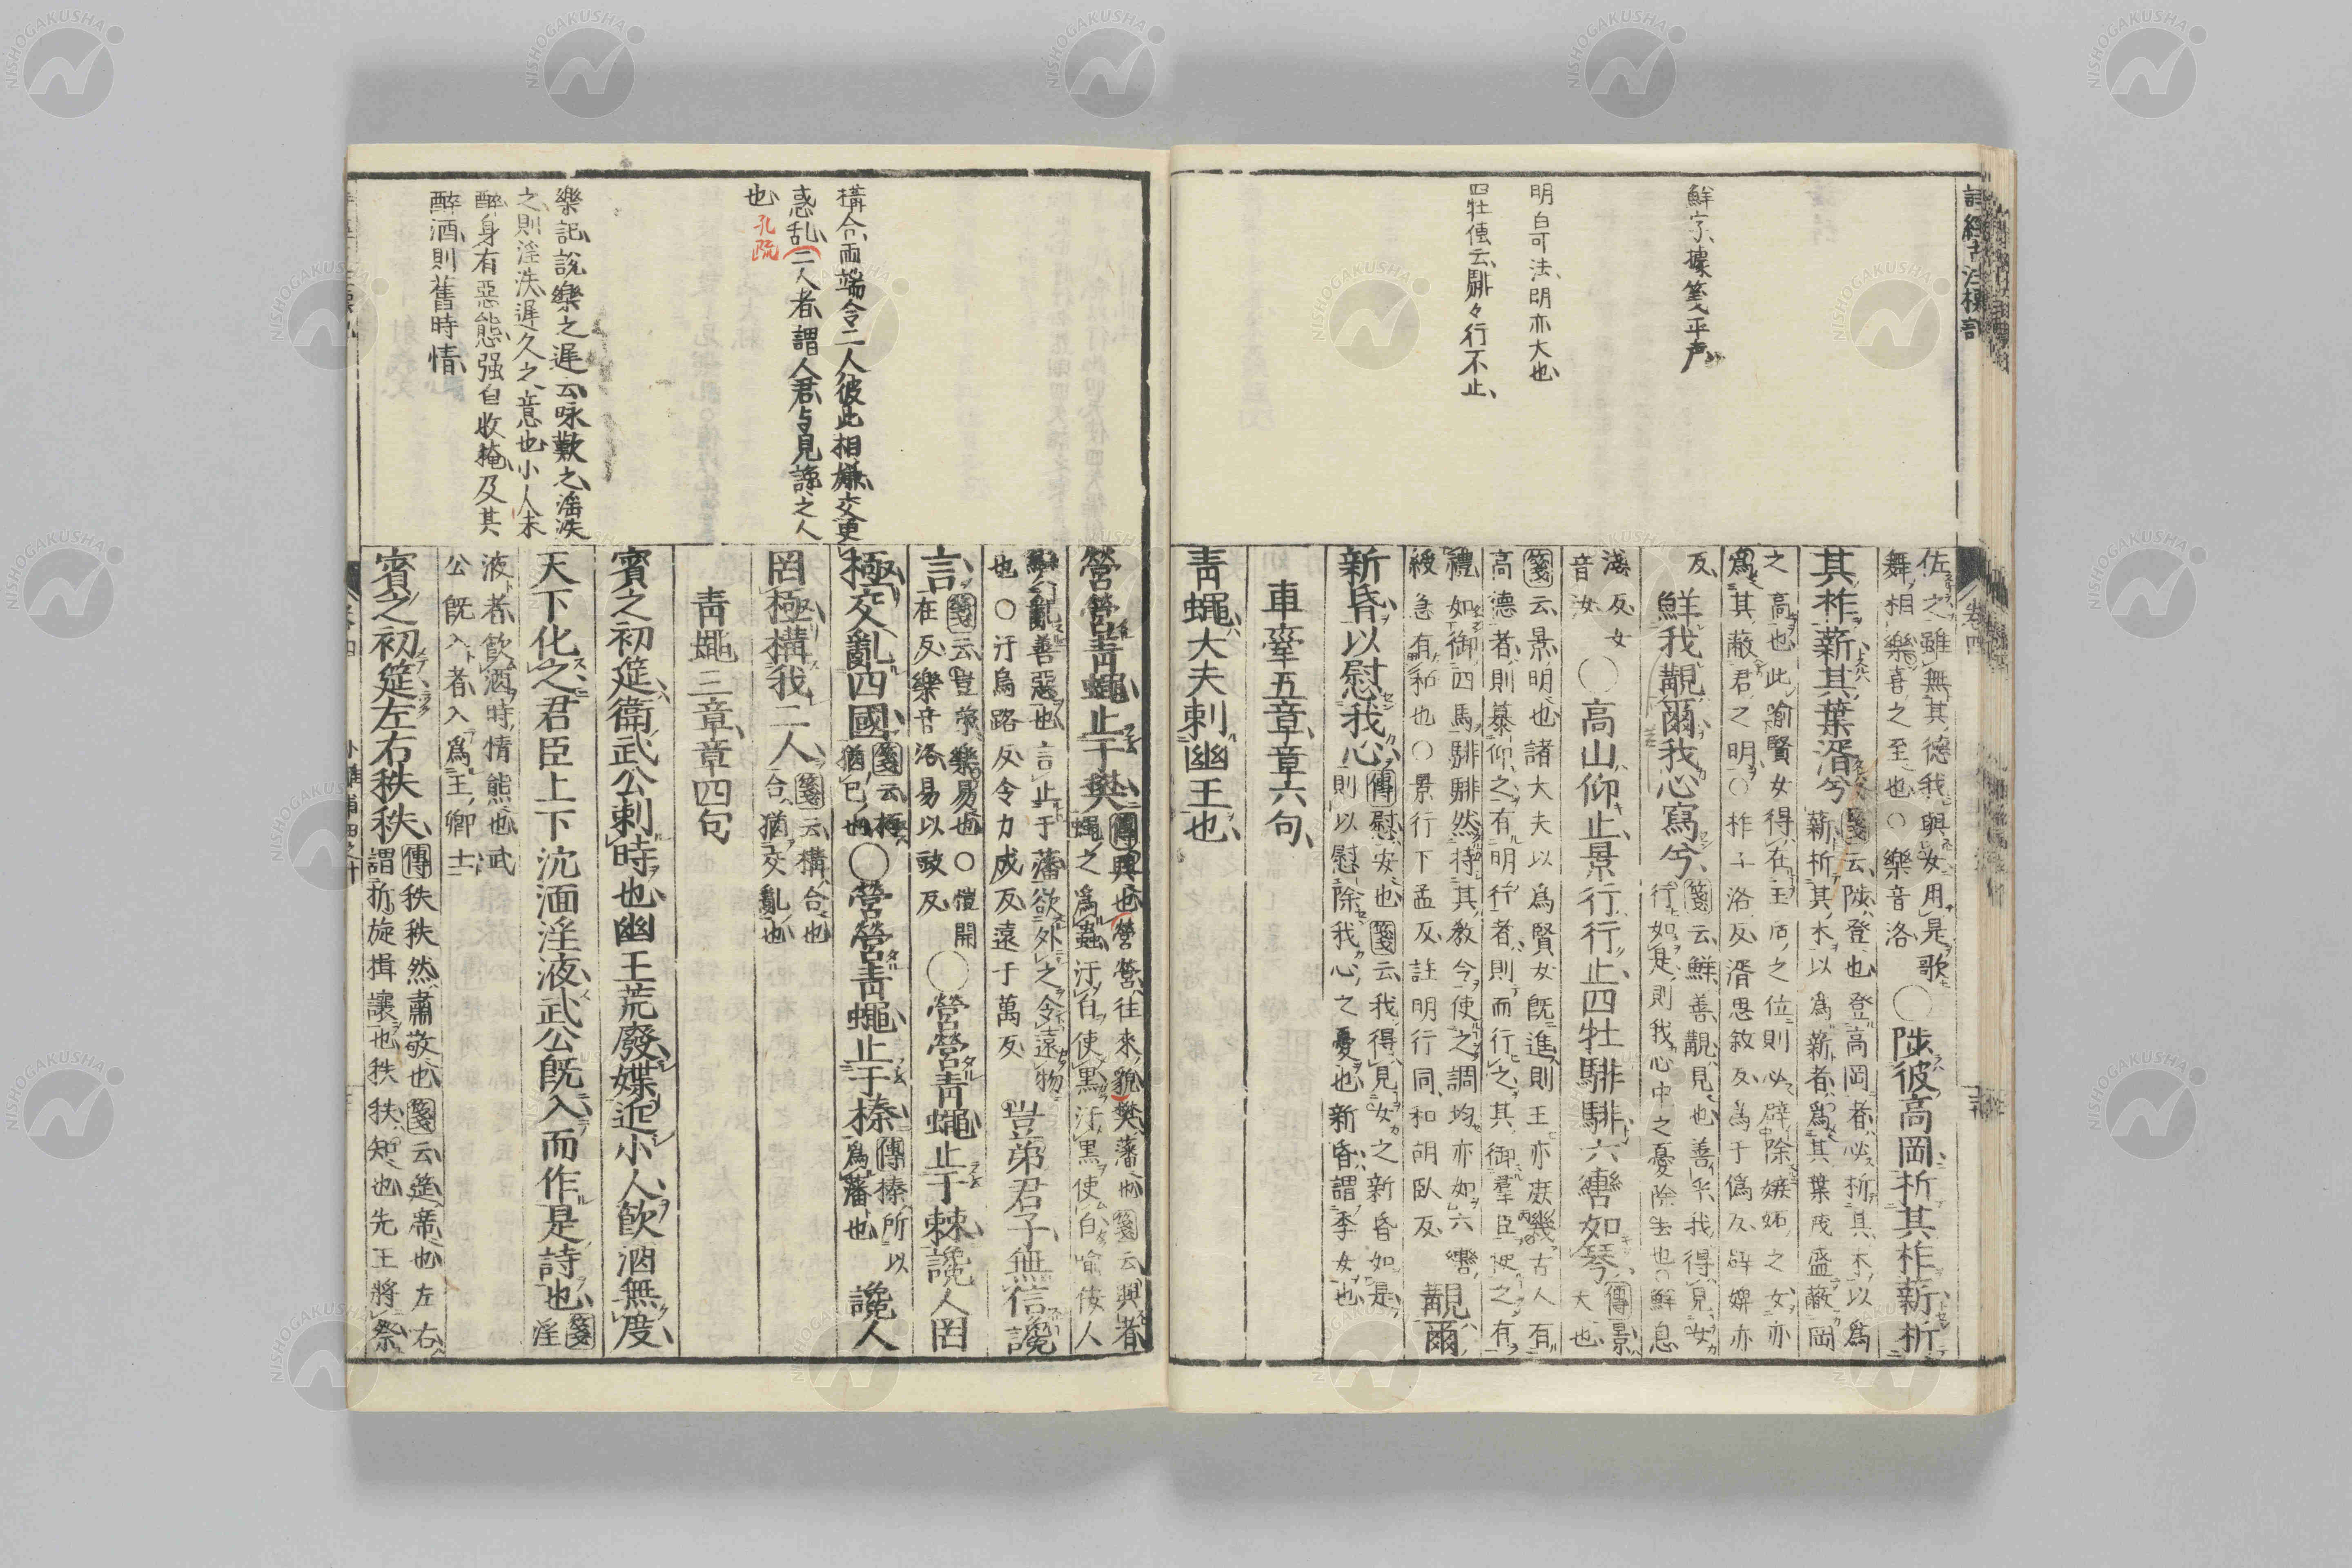 詩經古注標記
鮮字據箋平声
明白可法明亦大也
四牡傳云騑々行不止
佐之雖無其德我與女用是歌
舞相樂喜之至也○樂音洛
○陟彼高岡析其柞薪析
其柞薪其葉湑兮
箋云陟登也登高岡者必析其木以爲
薪析其木以爲薪者爲其葉茂盛蔽岡
之高也此喻賢女得在王后之位則必辟除嫉妬之女亦
爲其蔽君之明○柞子洛反湑思敘反爲于僞反辟婢亦
反
鮮我覯爾我心寫兮
箋云鮮善覯見也善乎我得見女
行如是則我心中之憂除去也○鮮息
淺反女
音汝
○高山仰止景行行止四牡騑騑六轡如琴
傳景
大也
箋云景明也諸大夫以爲賢女既進則王亦庶幾古人有
高德者則慕仰之有明行者則而行之其御羣臣使之有
禮如御四馬騑騑然持其教令使之調均亦如六轡
緩急有和也○景行下孟反註明行同和胡臥反
覯爾
新昏以慰我心
傳慰安也箋云我得見女之新昏如是
則以慰除我心之憂也新昏謂季女也
車舝五章章六句
靑蠅大夫刺幽王也
卷四
構合而端令二人彼此相嫌交更
惑乱二人者謂人君与見讒之人
也孔疏
樂記說樂之遲云咏歎之淫泆
之則淫泆遲久之意也小人未
醉身有惡態强自收掩及其
醉酒則舊時情
營營靑蠅止于樊
傳興也營營往來貌樊藩也箋云興者
蠅之爲蟲汙白使黑汙黑使白喻佞人
變亂善惡也言止于藩欲外之令遠物
也○汙烏路反令力成反遠于萬反
豈弟君子無信讒
言
箋云豈弟樂易也○愷開
在反樂音洛易以豉反
○營營靑蠅止于棘讒人罔
極交亂四國
箋云極
猶已也
○營營靑蠅止于榛
傳榛所以
爲藩也
讒人
罔極構我二人
箋云構合也
合猶交亂也
靑蠅三章章四句
賓之初筵衞武公刺時也幽王荒廢媟近小人飮酒無度
天下化之君臣上下沈湎淫液武公既入而作是詩也
箋
淫
液者飮酒時情態也武
公既入者入爲王卿士
賓之初筵左右秩秩
傳秩秩然肅敬也箋云筵席也左右
謂折旋揖讓也秩秩知也先王將祭